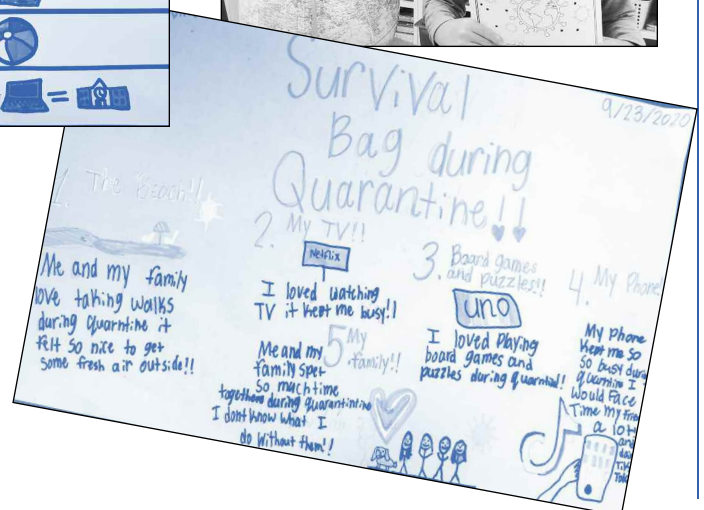 Survival
Bag during
Quarantine!!
9/23/2020
1. The Beach!!
Me and my family
love taking walks
during Quarntine it
felt so nice to get
some fresh air outside!!
2. My TV!!
Netflix
I loved watching
TV it kept me busy!!
3. Board games
and puzzles!!
uno
I loved Playing
board games and
puzzles during quarntine!
4. My Phone
My Phone
kept me so
so busy during
quarntine I
Would Face
Time my frie
a lot
and
5 My
family!!
Me and my
family spet
so much time
together during quarantintine
I dont know what I
do without them!!